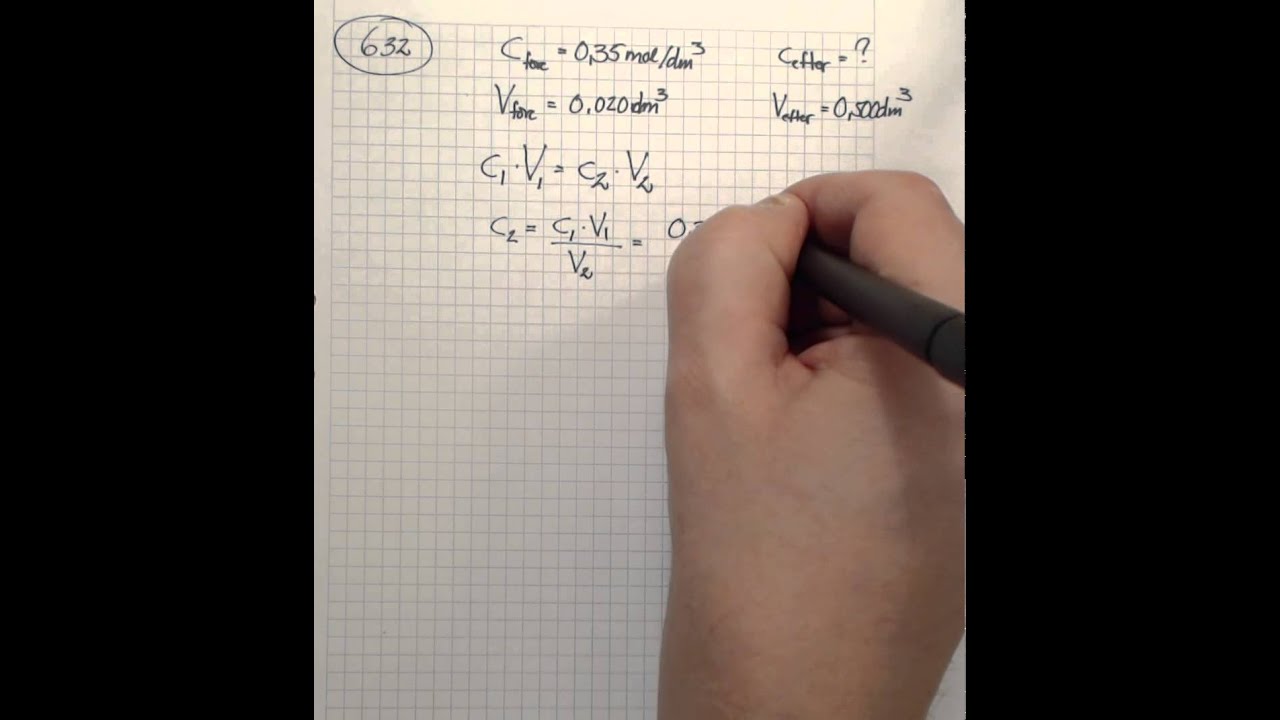 632
C_före = 0,35 mol/dm³ C_efter = ?
V_före = 0.020 dm³ V_efter = 0,500 dm³
C₁ · V₁ = C₂ · V₂
C₂ = C₁ · V₁ / V₂ =